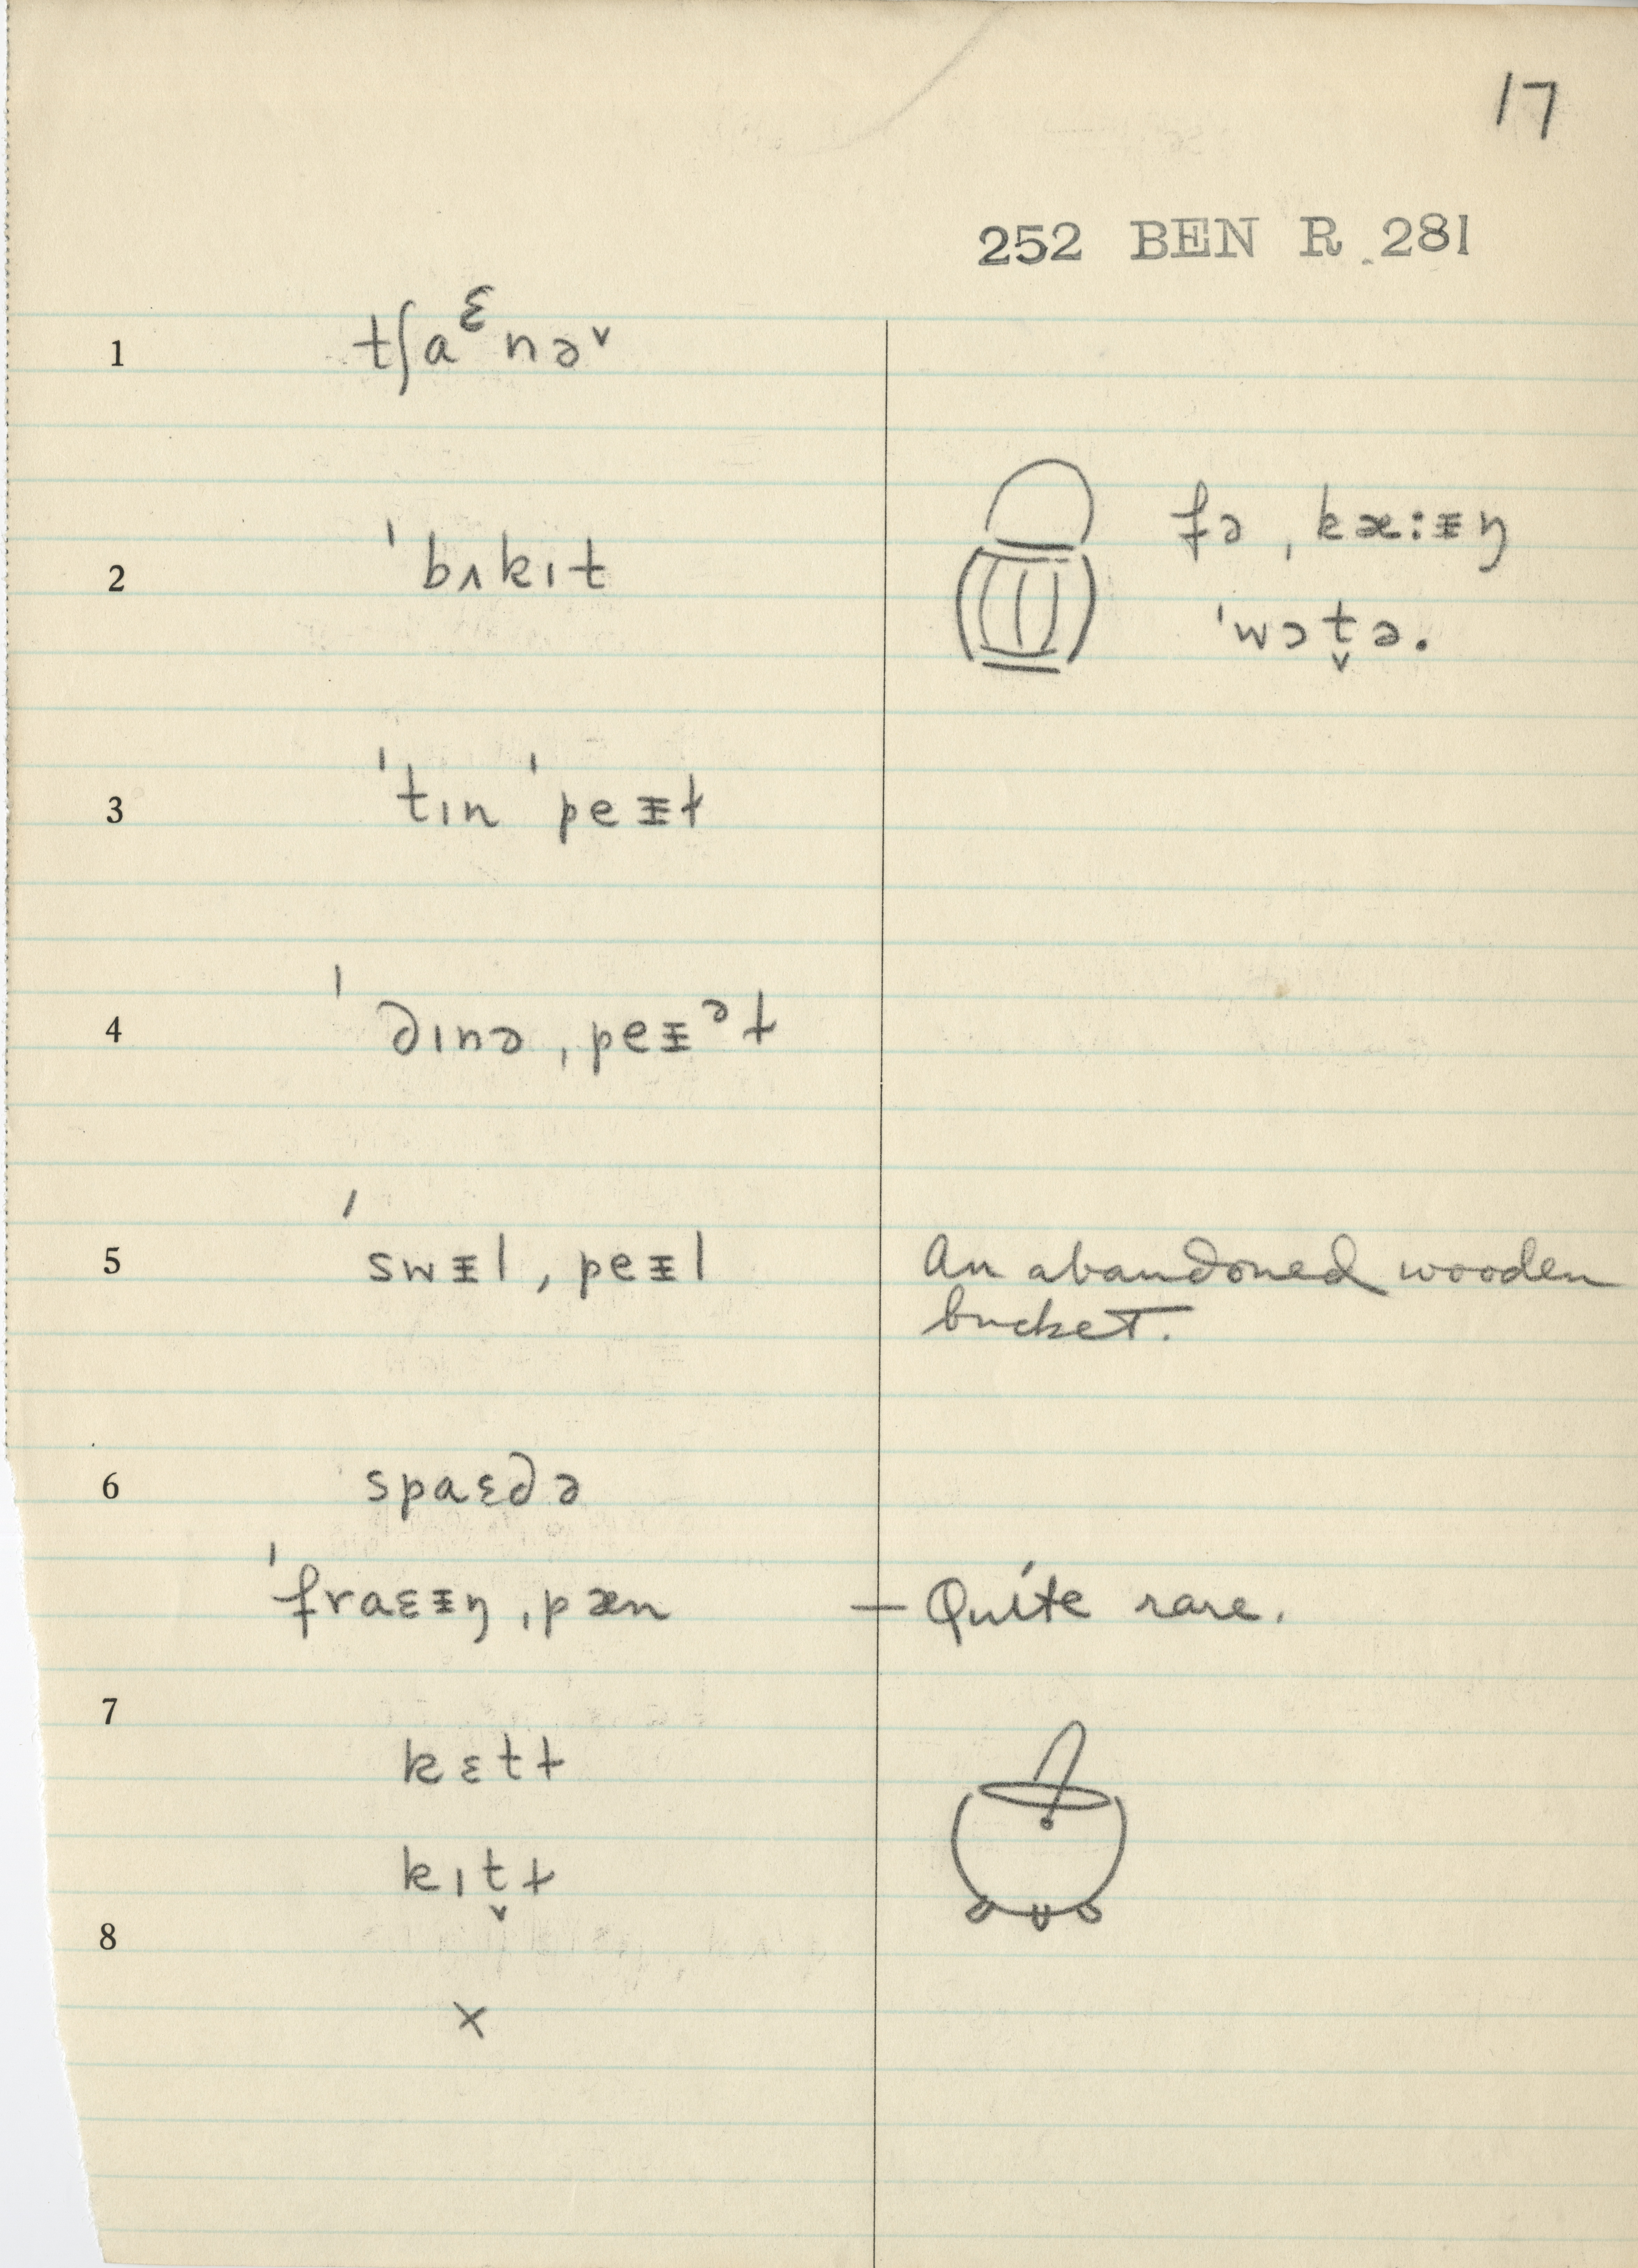 17
252 BEN R 281
1 tʃaᵋnə˅
2 ˈbʌkɪt
fə ˌkæ:ᵻŋ
ˈwɔt̬ə.
3 ˈtɪn ˈpeᵻɫ
4 ˈ∂ɪnə ˌpeᵻᵊɫ
5 ˈswᵻl ˌpeᵻl
An abandoned wooden
bucket.
6 spaɛ∂ə
ˈfraɛᵻŋ ˌpæn — Quite rare.
7
kɛtɫ
kɪt̬ɫ
8
x